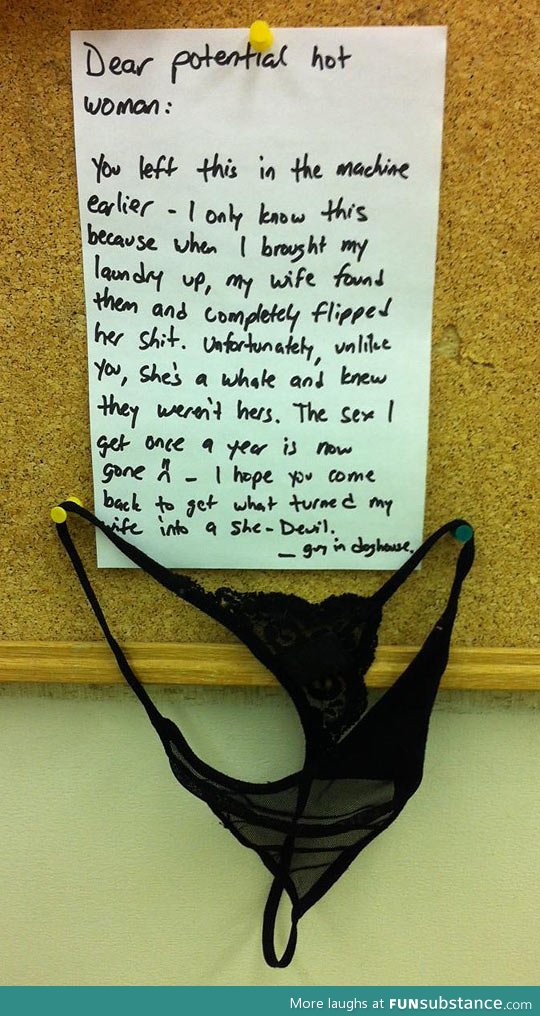 Dear potential hot
woman:
You left this in the machine
earlier - I only know this
because when I brought my
laundry up, my wife found
them and completely flipped
her shit. Unfortunately, unlike
you, she's a whale and knew
they weren't hers. The sex I
get once a year is now
gone :( - I hope you come
back to get what turned my
wife into a She-Devil.
- guy in doghouse.
More laughs at FUNsubstance.com